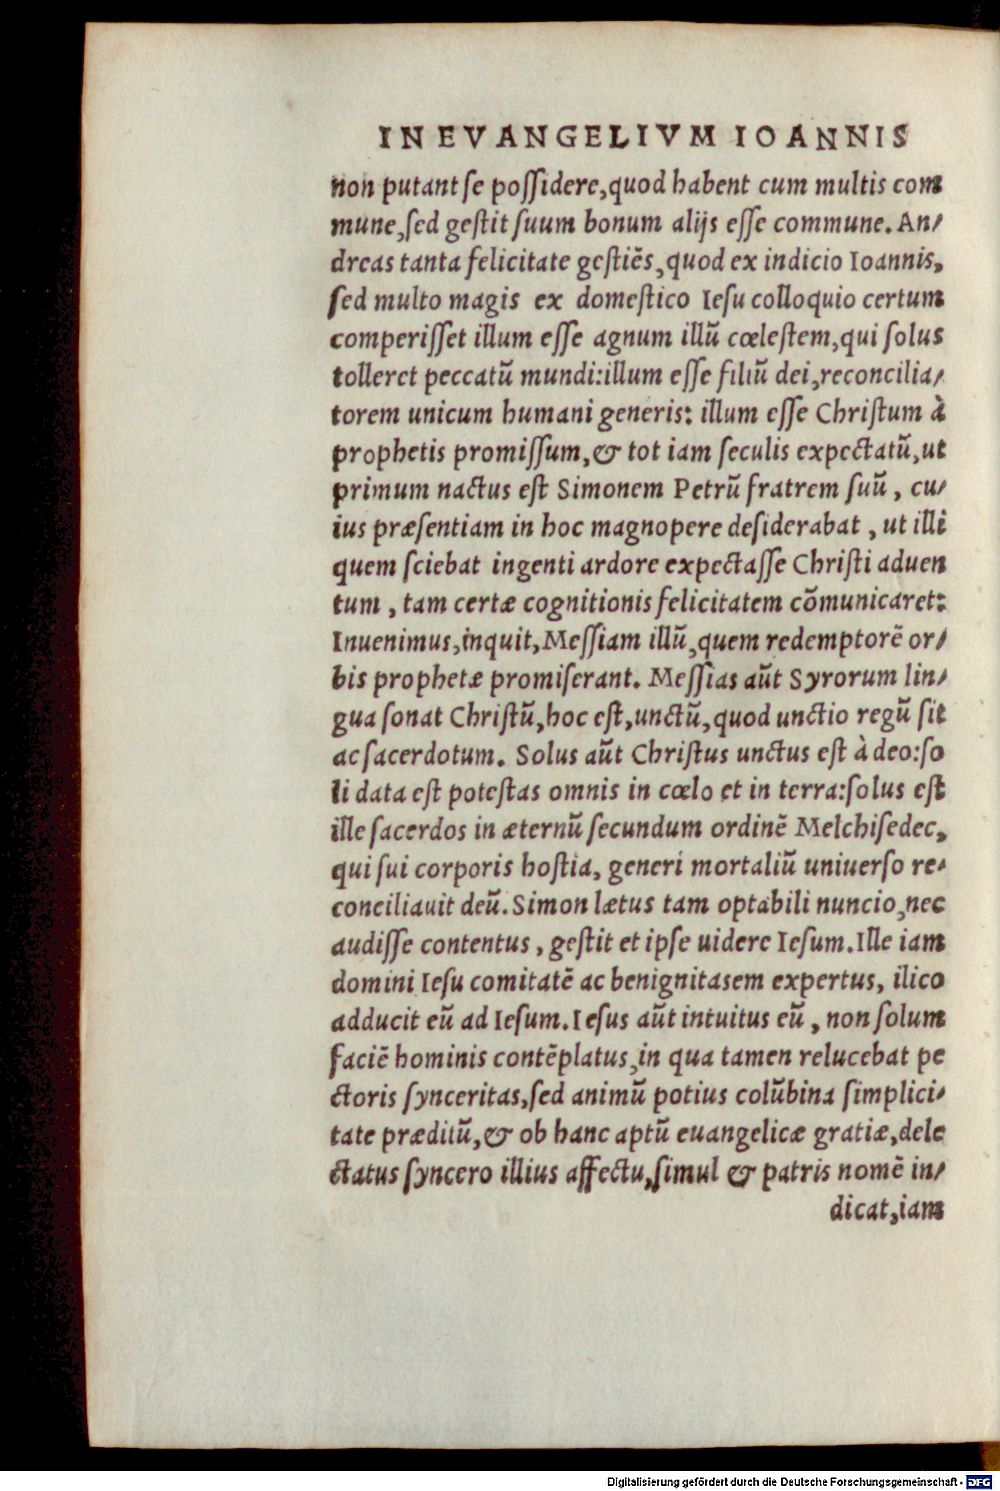 IN EVANGELIVM IOANNIS
non putant se possidere,quod habent cum multis com
mune,sed gestit suum bonum alijs esse commune. An/
dreas tanta felicitate gestiēs,quod ex indicio Ioannis,
sed multo magis ex domestico Iesu colloquio certum
comperisset illum esse agnum illū cœlestem,qui solus
tolleret peccatū mundi:illum esse filiū dei,reconcilia/
torem unicum humani generis: illum esse Christum à
prophetis promissum,& tot iam seculis expectatū,ut
primum nactus est Simonem Petrū fratrem suū, cu/
ius præsentiam in hoc magnopere desiderabat, ut illi
quem sciebat ingenti ardore expectasse Christi aduen
tum, tam certæ cognitionis felicitatem cōmunicaret:
Inuenimus,inquit,Messiam illū,quem redemptorē or/
bis prophetæ promiserant. Messias aūt Syrorum lin/
gua sonat Christū,hoc est,unctū,quod unctio regū sit
ac sacerdotum. Solus aūt Christus unctus est à deo:so
li data est potestas omnis in cœlo et in terra:solus est
ille sacerdos in æternū secundum ordinē Melchisedec,
qui sui corporis hostia, generi mortaliū uniuerso re/
conciliauit deū.Simon lætus tam optabili nuncio,nec
audisse contentus, gestit et ipse uidere Iesum.Ille iam
domini Iesu comitatē ac benignitasem expertus, ilico
adducit eū ad Iesum.Iesus aūt intuitus eū, non solum
faciē hominis contēplatus,in qua tamen relucebat pe
ctoris synceritas,sed animū potius colūbina simplici/
tate præditū,& ob hanc aptū euangelicæ gratiæ,dele
ctatus syncero illius affectu,simul & patris nomē in/
dicat,iam
Digitalisierung gefördert durch die Deutsche Forschungsgemeinschaft - DFG